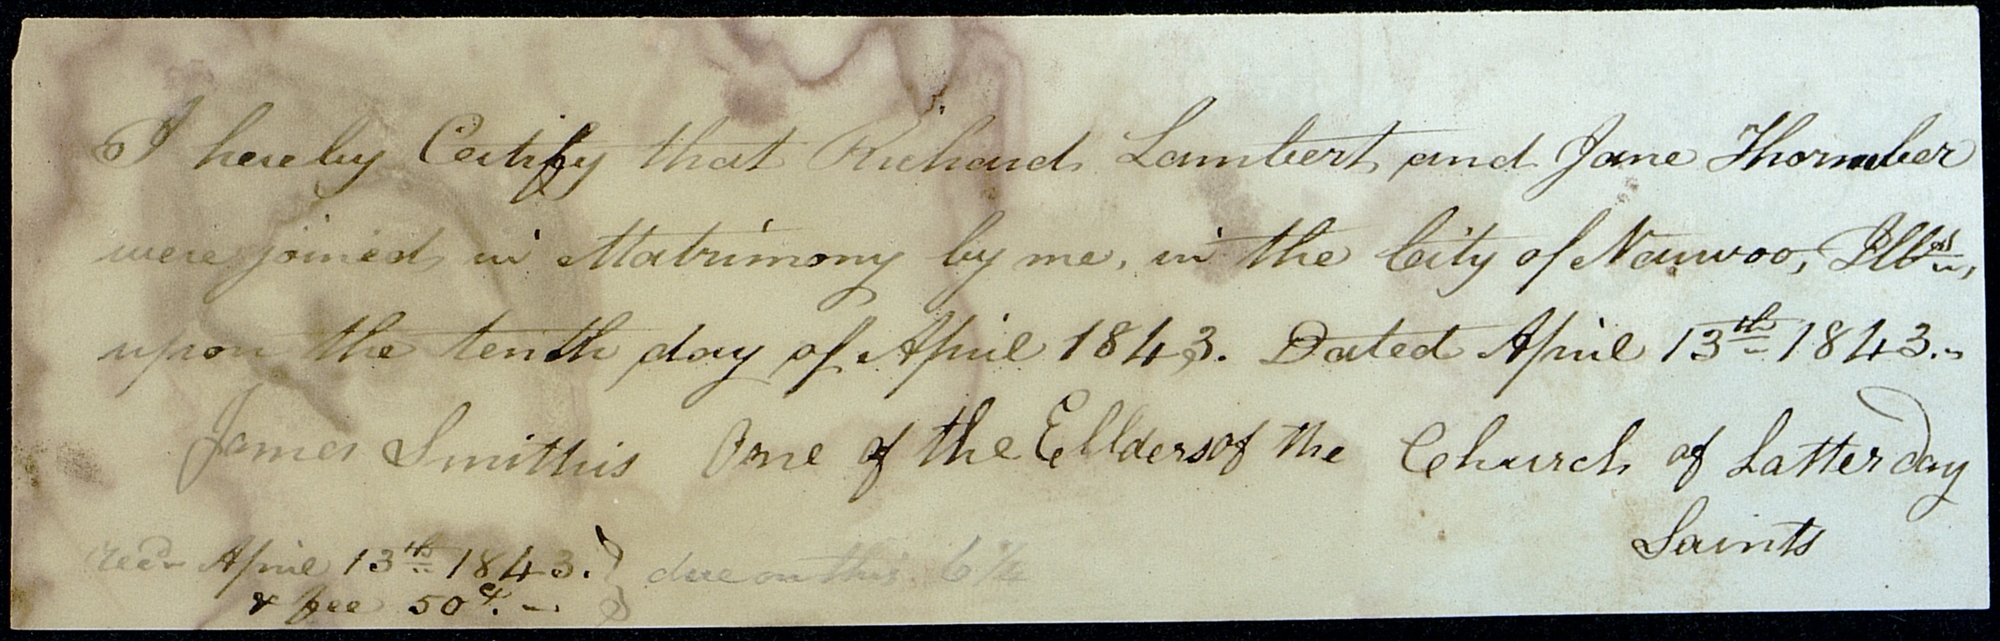 I hereby Certify that Richard Lambert and Jane Thornber
were joined in Matrimony by me, in the City of Nauvoo, Ills,
upon the tenth day of April 1843. Dated April 13th 1843.
James Smithis One of the Ellders of the Church of Latter day
Saints
recd April 13th 1843. } due on this 6 1/4
& fee 50 ct.